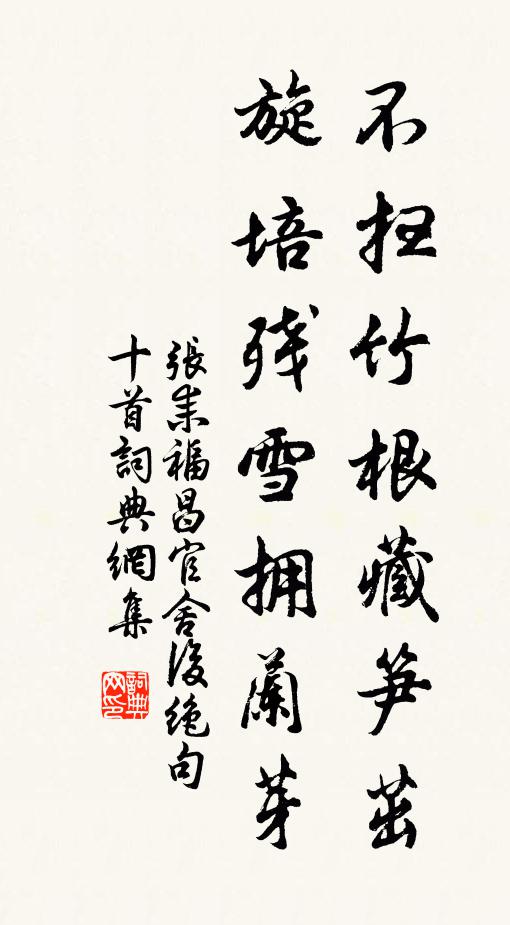 不扫竹根藏笋茁
旋培残雪拥蘭芽
張耒福昌官舍後絶句
十首詞典網集
詞典网印